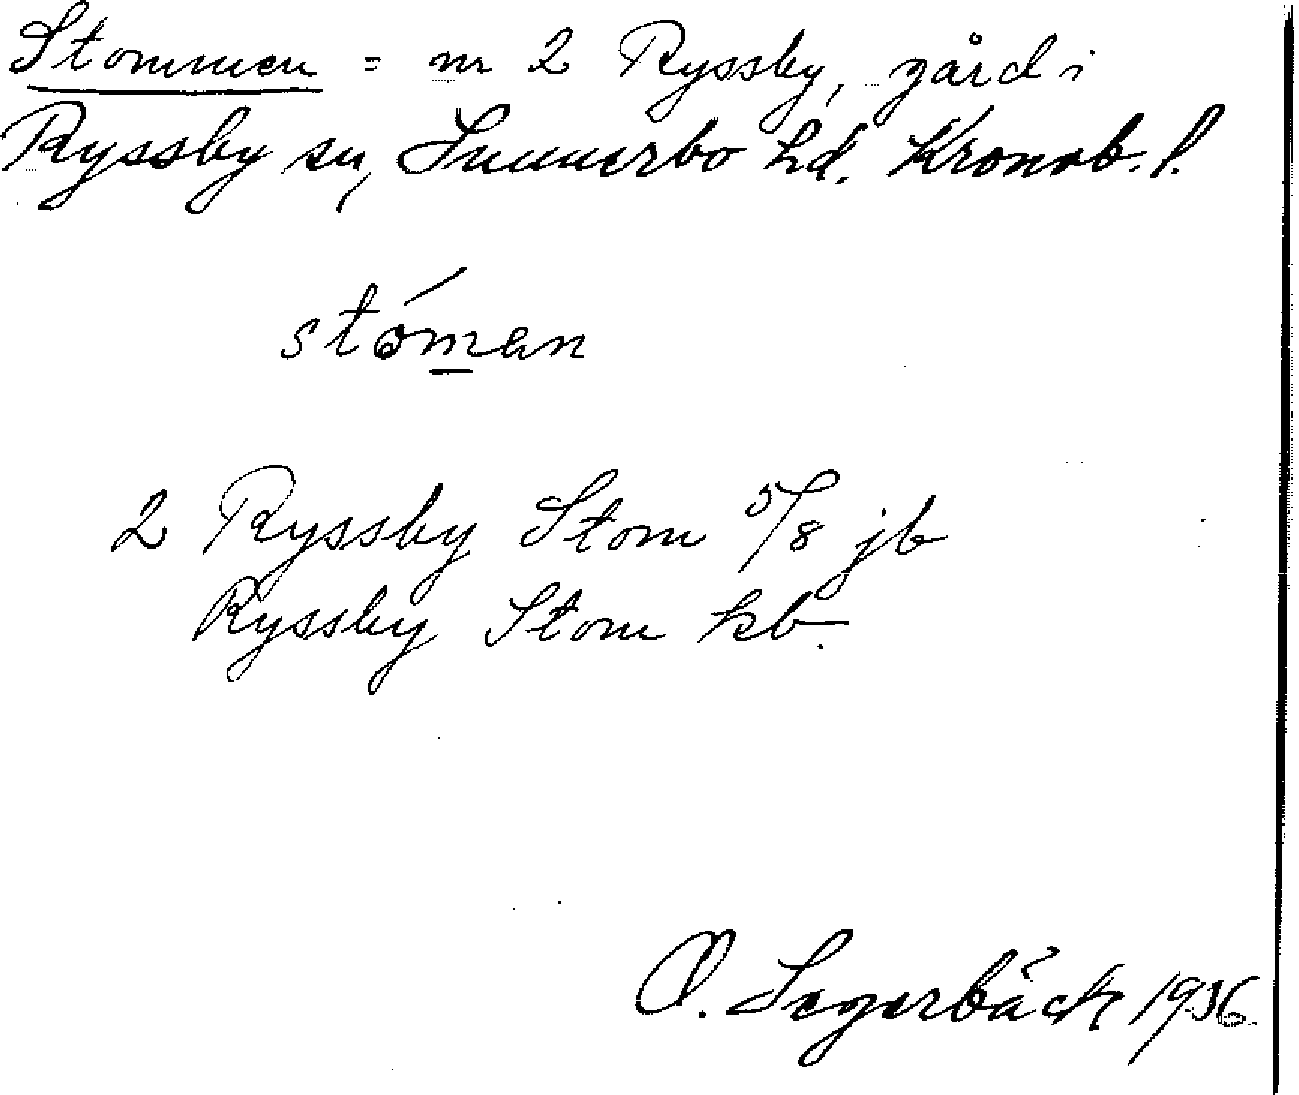 Stommen = nr 2 Ryssby, gård i
Ryssby sn, Sunnerbo hd. Kronob. l.
stóman
2 Ryssby Stom 5/8 jb
Ryssby Stom hb.
O. Segerbäck 1936